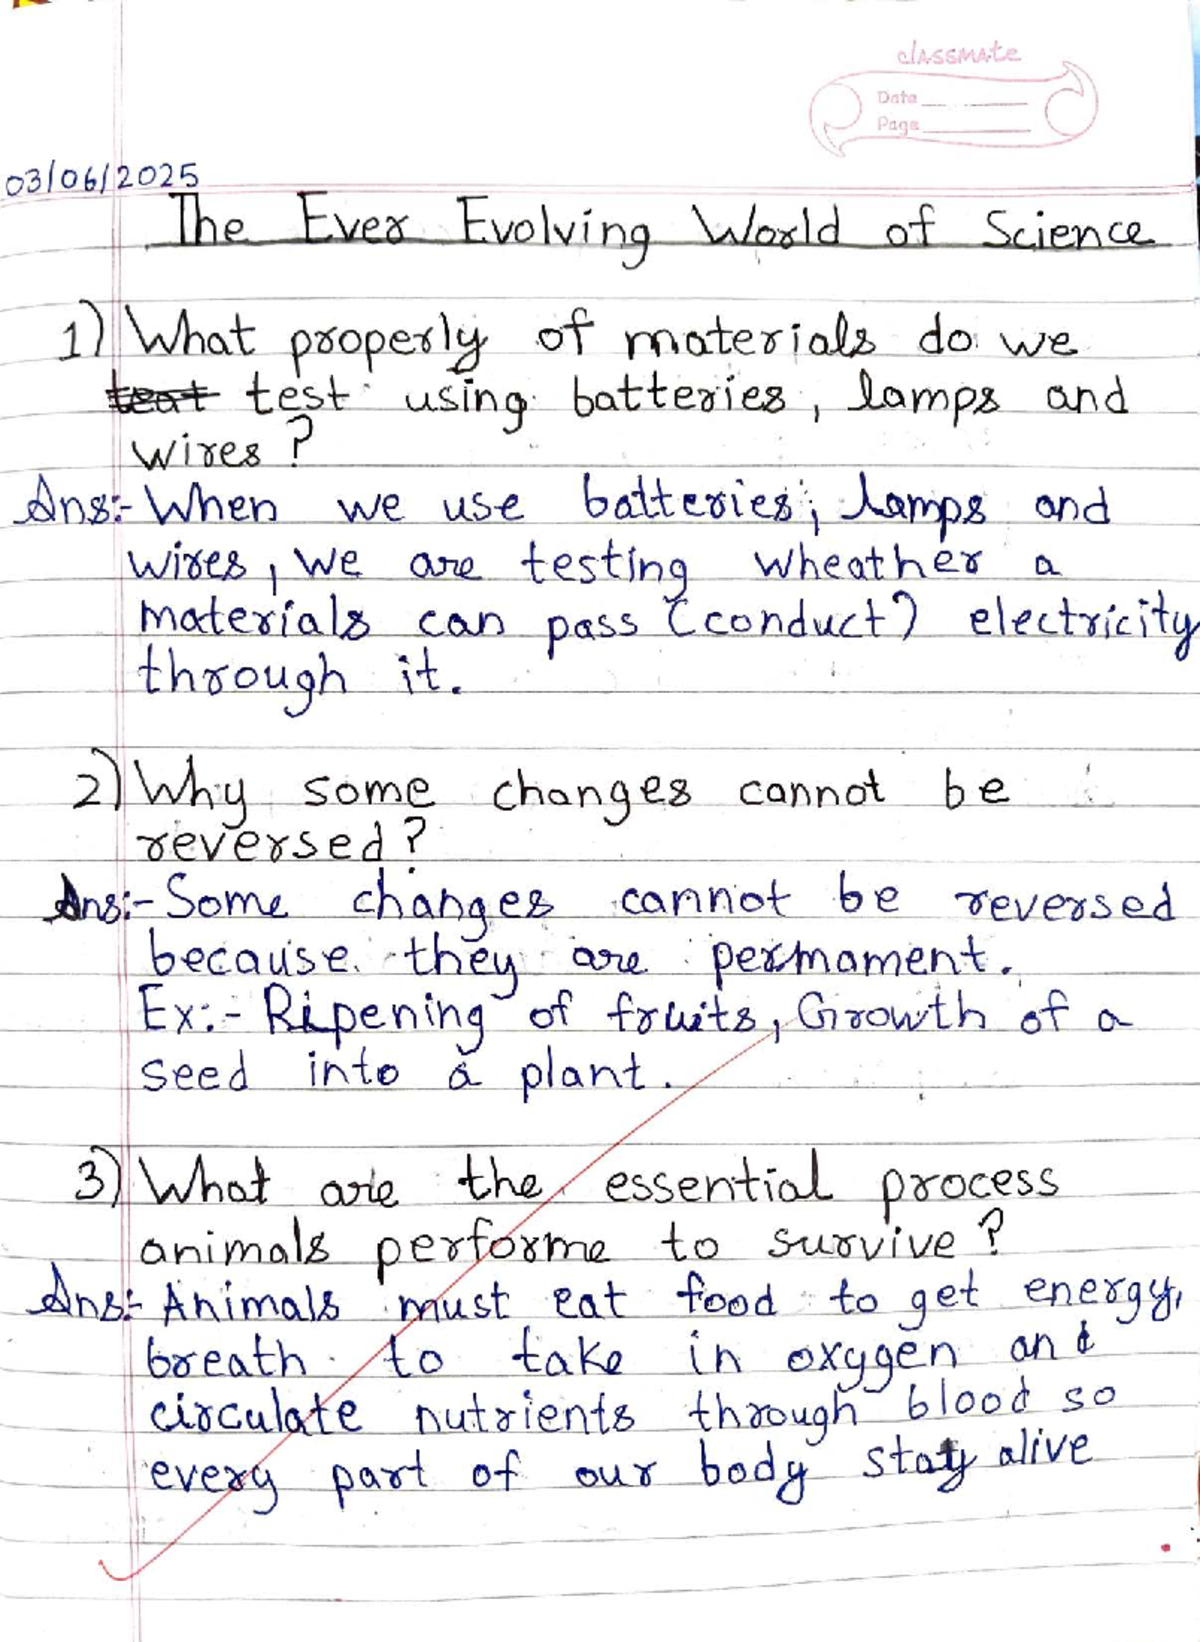 classmate
Date
Page
03/06/2025
The Ever Evolving World of Science
1) What properly of materials do we
teat test using batteries, lamps and
wires?
Ans:- When we use batteries, lamps and
wires, we are testing wheather a
materials can pass (conduct) electricity
through it.
2) Why some changes cannot be
reversed?
Ans:- Some changes cannot be reversed
because they are permament.
Ex:- Ripening of fruits, Growth of a
seed into a plant.
3) What are the essential process
animals performe to survive?
Ans:- Animals must eat food to get energy,
breath to take in oxygen and
circulate nutrients through blood so
every part of our body stay alive